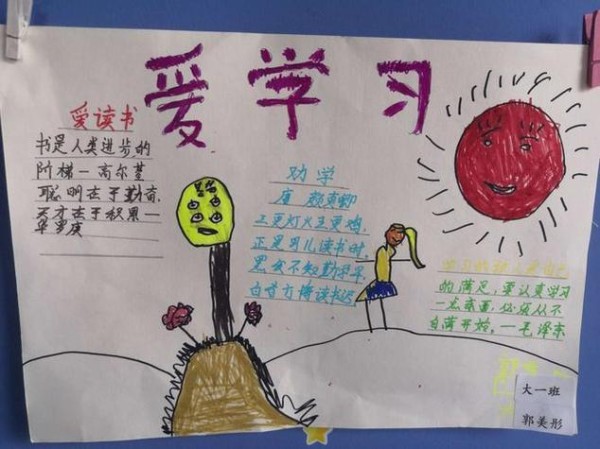 爱学习
爱读书
书是人类进步的
阶梯一高尔基
聪明在于勤奋,
天才在于积累一
华罗庚
劝学
唐 颜真卿
三更灯火五更鸡,
正是男儿读书时,
黑发不知勤学早,
白首方悔读书迟
学习的敌人是自己
的满足,要认真学习
一点东西,必须从不
自满开始。一毛泽东
大一班
郭美彤